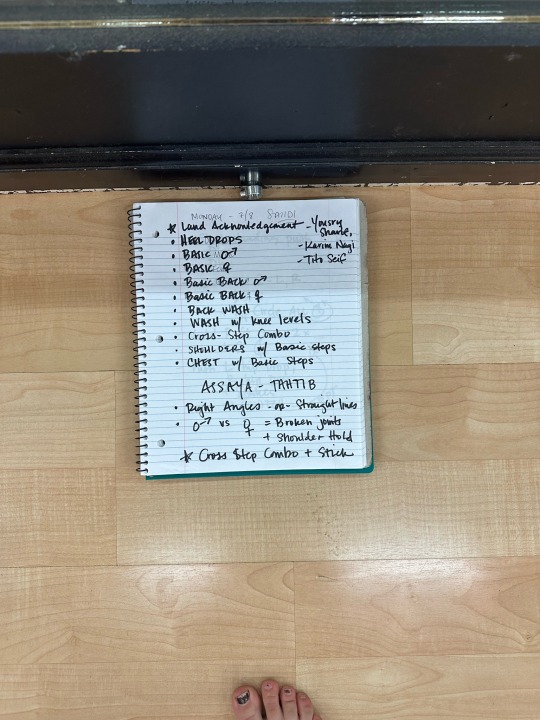 MONDAY - 7/8 SAIDI
* Land Acknowledgement - Yousry Sharif,
• HEEL DROPS - Karim Nagi
• BASIC ♂ - Tito Seif
• BASIC ♀
• Basic Back ♂
• Basic Back ♀
• BACK WASH
• WASH w/ knee levels
• Cross-Step Combo
• SHOULDERS w/ Basic steps
• CHEST w/ Basic Steps
ASSAYA - TAHTIB
• Right Angles -or- Straight lines
• ♂ vs ♀ = Broken joints
+ Shoulder Hold
* Cross Step Combo + Stick